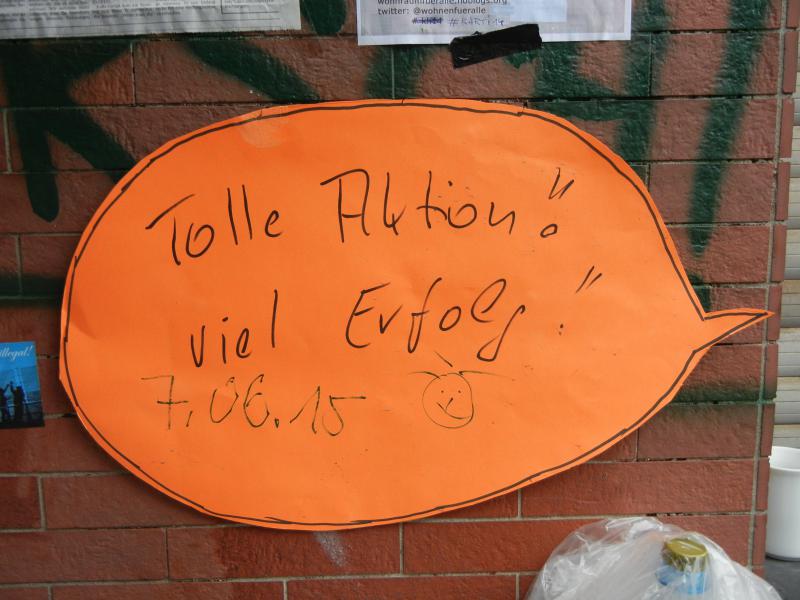 wohnraumfueralle.noblogs.org
twitter: @wohnenfueralle
illegal!
Tolle Aktion!
viel Erfolg!
7.06.15